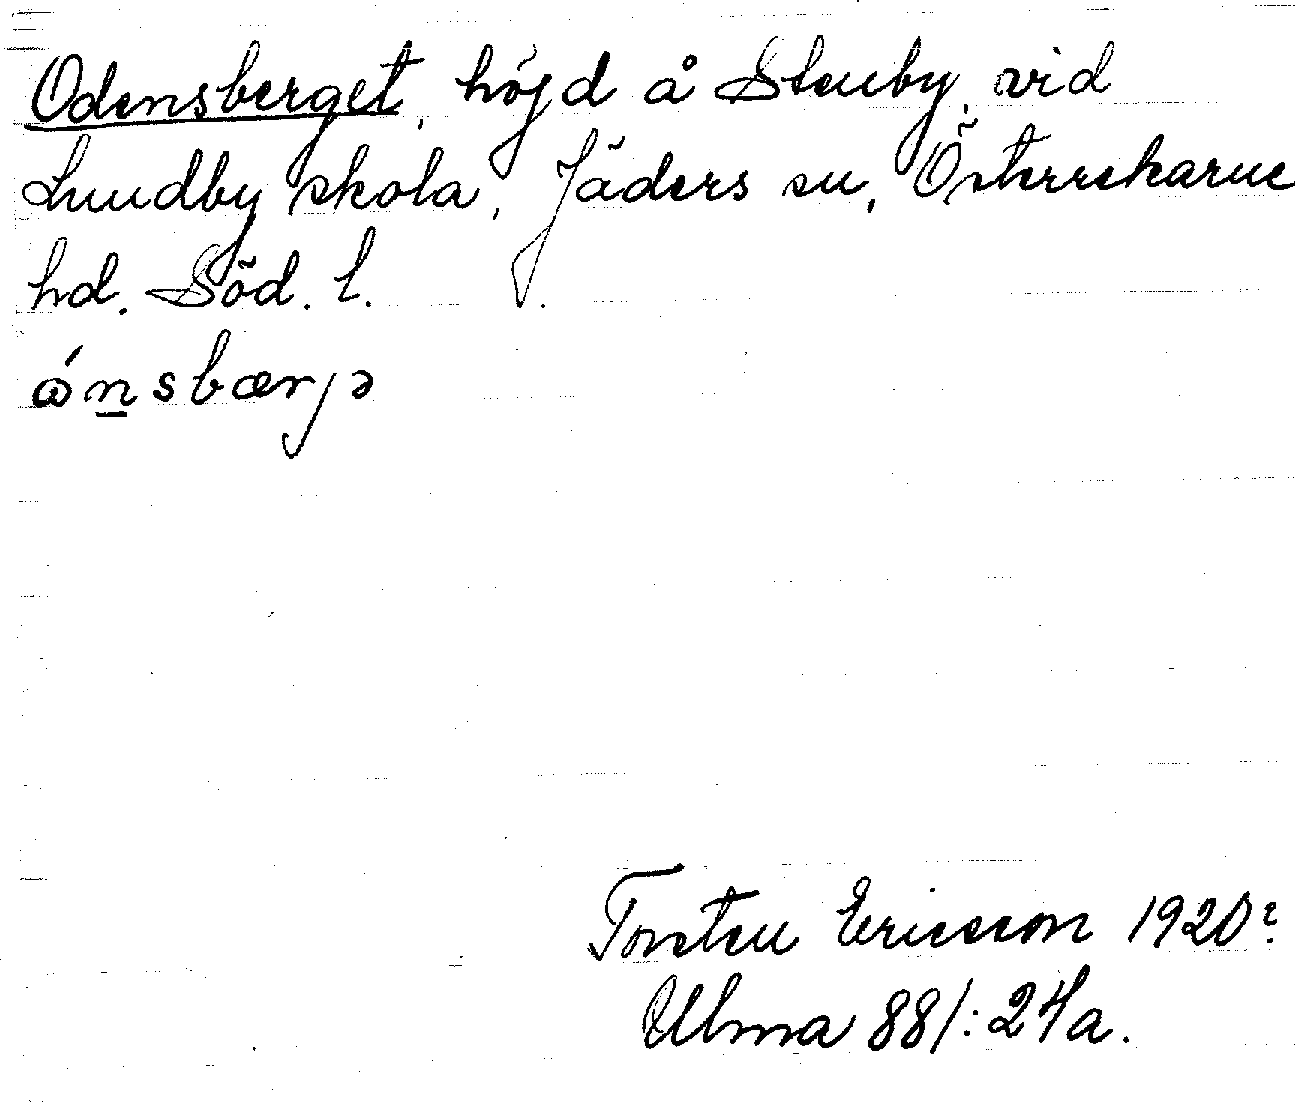 Odensberget, höjd å Stenby, vid
Lundby skola, Jäders sn, Österrekarne
hd. Söd. l.
ɷ́n̲sbærjə
Torsten Ericsson 1920?
Ulma 881:24a.